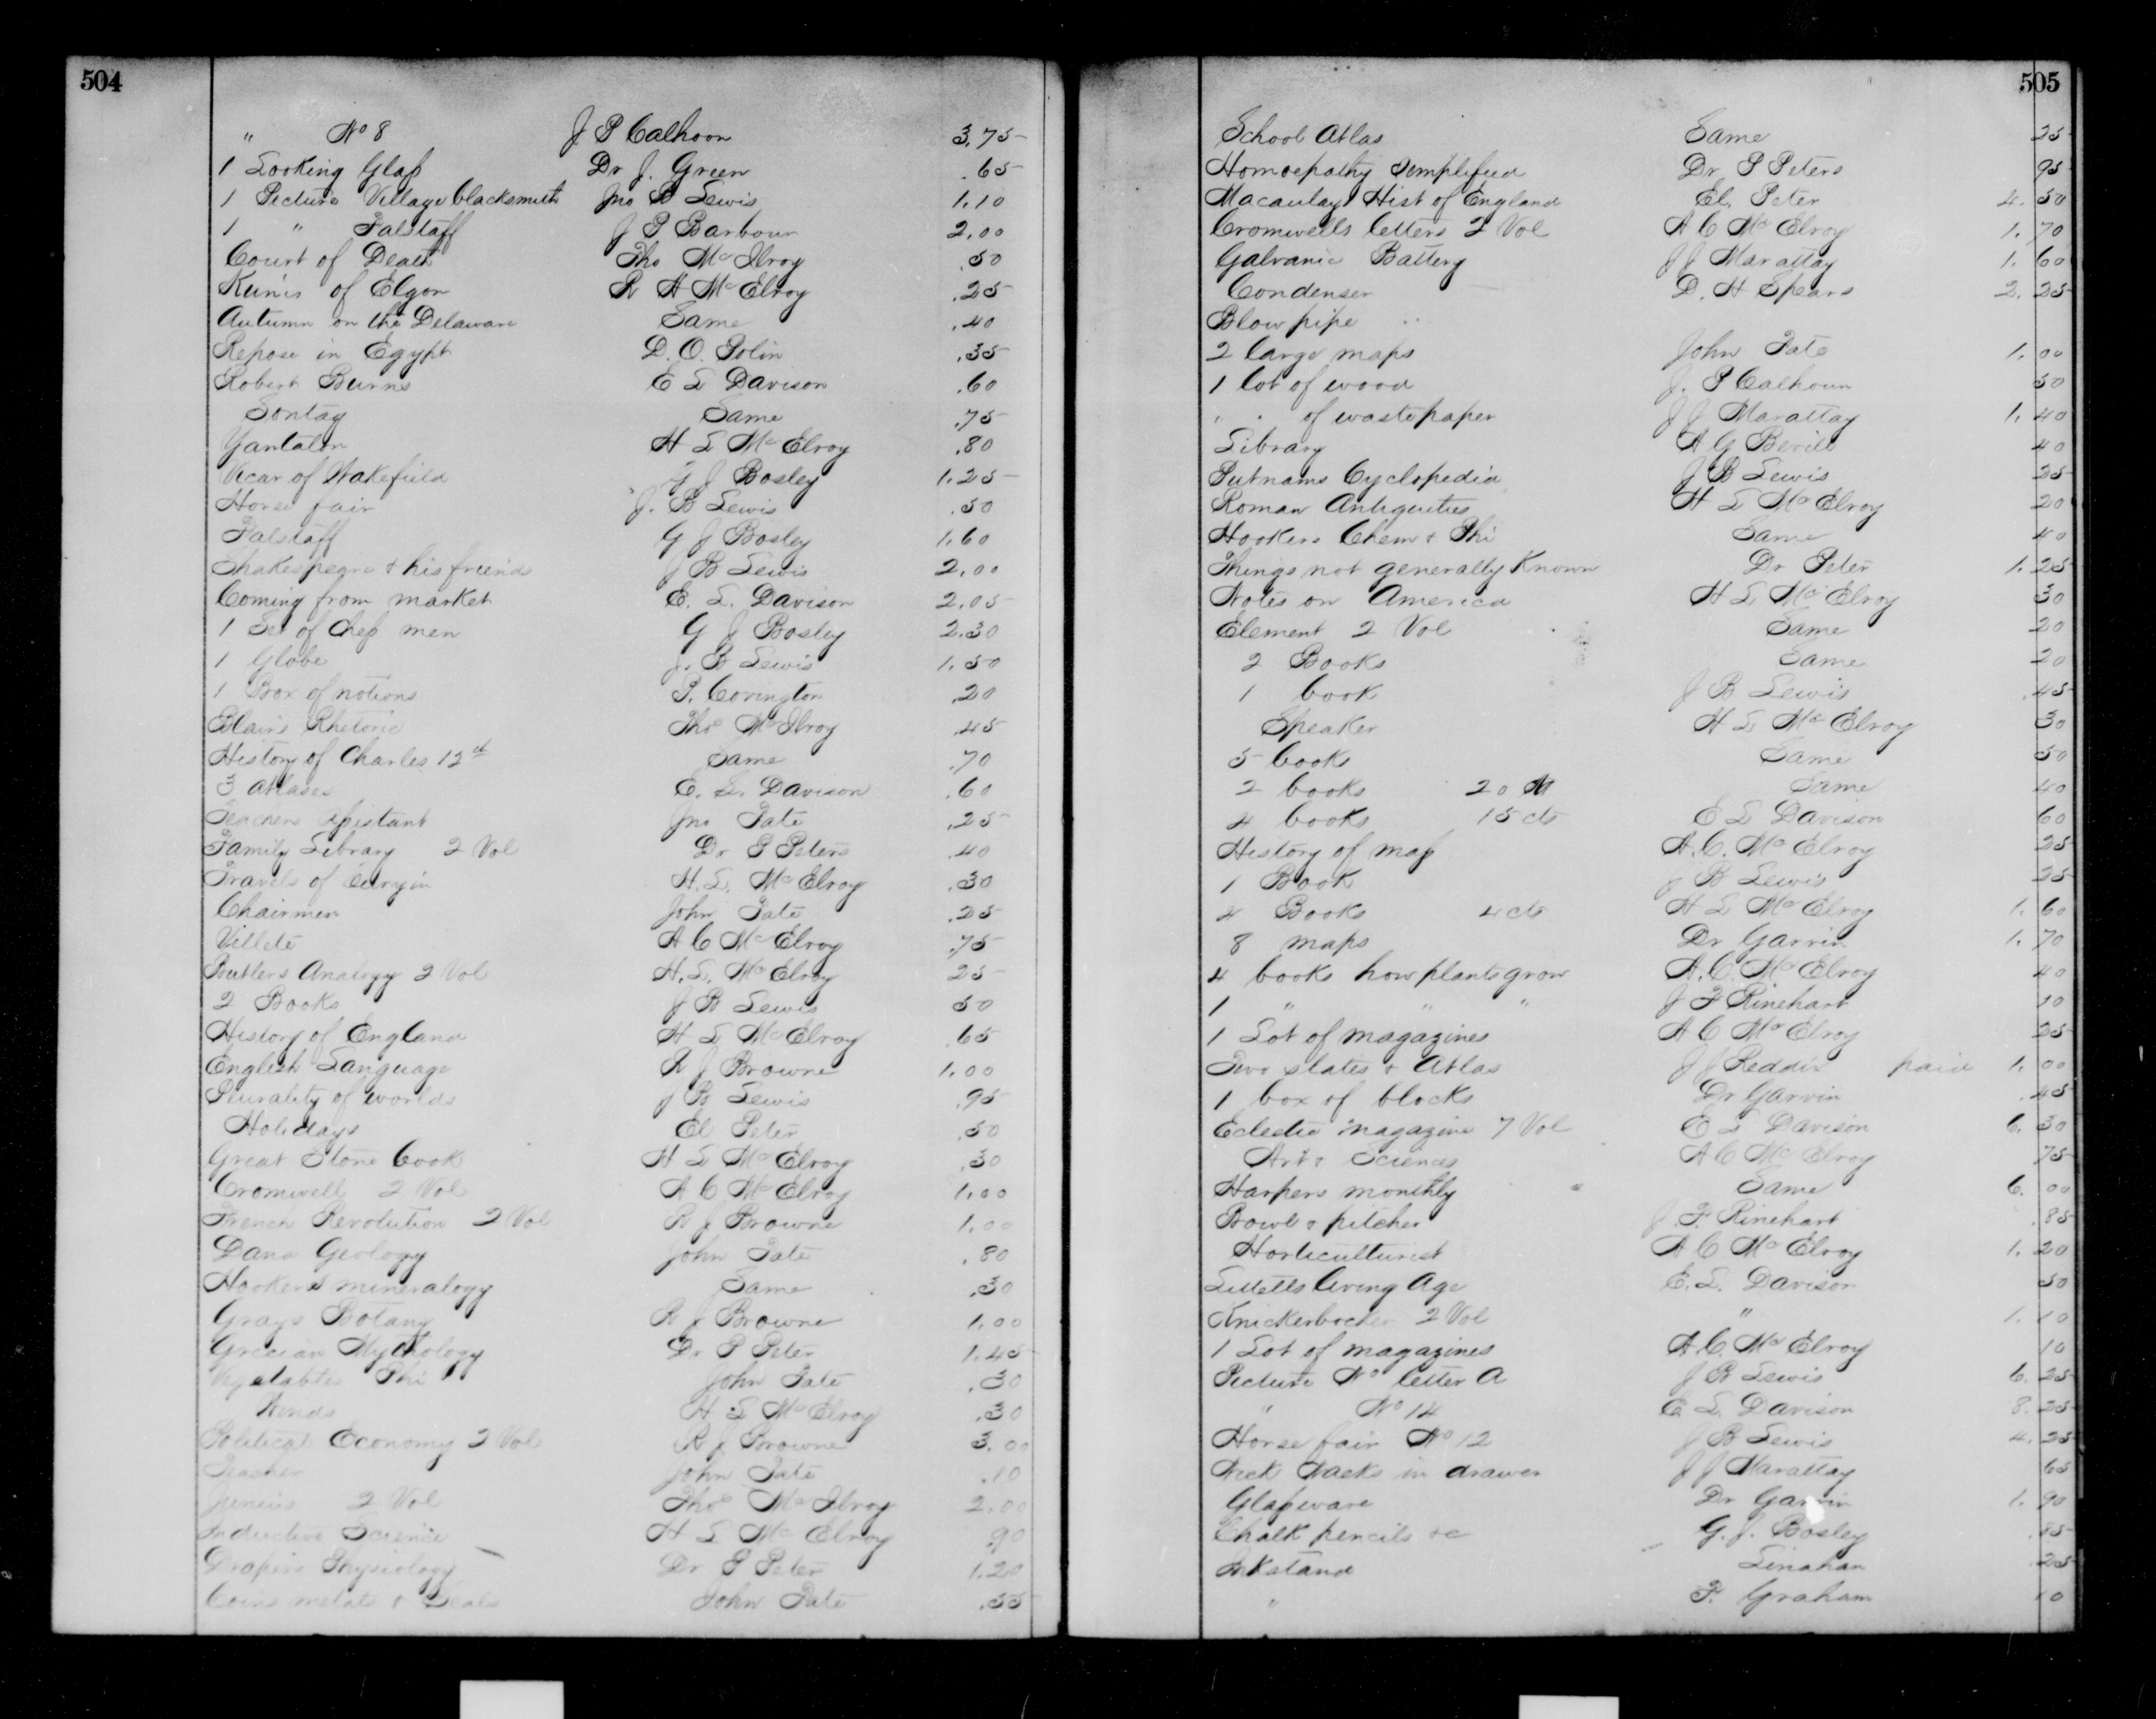 504
" No 8 J P Calhoon 3.75
1 Looking Glass Dr J. Green .65
1 Picture Village blacksmith Jno B Lewis 1.10
1 " Falstaff J P Barbour 2.00
Court of Death Tho McIlroy .50
Ruins of Elgon R H McElroy .25
Autumn on the Delaware Same .40
Repose in Egypt D. O. Polin .35
Robert Burns E L Davison .60
Sontag Same .75
Yantalon H L McElroy .80
Vicar of Wakefield G J Bosley 1.25
Horse fair J. B Lewis .50
Falstaff G J Bosley 1.60
Shakespeare & his friends J B Lewis 2.00
Coming from market E. L. Davison 2.05
1 Set of Chess men G J Bosley 2.30
1 Globe J. B Lewis 1.50
1 Box of notions P. Covington .20
Blair's Rhetoric Thos McIlroy .45
History of Charles 12th Same .70
3 Atlases E. L. Davison .60
Teachers Assistant Jno Tate .25
Family Library 2 Vol Dr P Peters .40
Travels of H. L. McElroy .30
Chairmen John Tate .25
Villete A C McElroy .75
Butlers Analogy 2 Vol H. L. McElroy 25
2 Books J B Lewis 50
History of England H L McElroy .65
English Language R J Browne 1.00
Plurality of worlds J B Lewis .95
Holidays El Peter .50
Great Stone book H L McElroy .30
Cromwell 2 Vol A C McElroy 1.00
French Revolution 2 Vol R J Browne 1.00
Dana Geology John Tate .80
Hookers mineralogy Same .30
Grays Botany R J Browne 1.00
Grecian Mythology Dr P Peter 1.45
Vegetables Phi John Tate .30
Winds H L McElroy .30
Political Economy 2 Vol R J Browne 3.00
Teacher John Tate .10
Junius 2 Vol Thos McIlroy 2.00
Inductive Science H L McElroy .90
Drapers Physiology Dr P Peter 1.20
Coins metals & Seals John Tate .55
505
School Atlas Same 25
Homoepathy Simplified Dr P Peters 95
Macaulays Hist of England El. Peter 4.50
Cromwells letters 2 Vol A C McElroy 1.70
Galvanic Battery J J Marattay 1.60
Condenser D. H Spears 2.25
Blow pipe
2 large maps John Tate 1.00
1 lot of wood J. P Calhoun 50
" " of wastepaper J J Marattay 1.40
Library A G Bevill 40
Putnams Cyclopedia J B Lewis 25
Roman Antiquities H L McElroy 20
Hookers Chem & Phi Same 40
Things not generally Known Dr Peter 1.25
Notes on America H L McElroy 30
Element 2 Vol Same 20
2 Books Same 20
1 book J B Lewis .45
Speaker H L McElroy 30
5 books Same 50
2 books 20 Same 40
4 books 15 cts E L Davison 60
History of map A. C. McElroy 25
1 Book J B Lewis 25
4 Books 4 cts H L McElroy 1.60
8 maps Dr Garvin 1.70
4 books how plants grow A. C. McElroy 40
1 " " " J F Rinehart 10
1 Lot of magazines A C McElroy 25
Two slates & Atlas J J Reddix paid 1.00
1 box of blocks Dr Garvin .45
Eclectic magazine 7 Vol E L Davison 6.30
Art & Sciences A C McElroy 75
Harpers monthly Same 6.00
Bowl & pitcher J. F. Rinehart .85
Horticulturist A C McElroy 1.20
Littells living Age E. L. Davison 50
Knickerbocker 2 Vol " 1.10
1 Lot of magazines A. C. McElroy 10
Picture No letter A J B Lewis 6.25
" No 14 E L Davison 8.25
Horse fair No 12 J B Lewis 4.25
Nick Nacks in drawer J J Marattay 65
Glassware Dr Garvin 1.90
Chalk pencils &c G. J. Bosley .85
Inkstand Linahan .25
" F. Graham 10